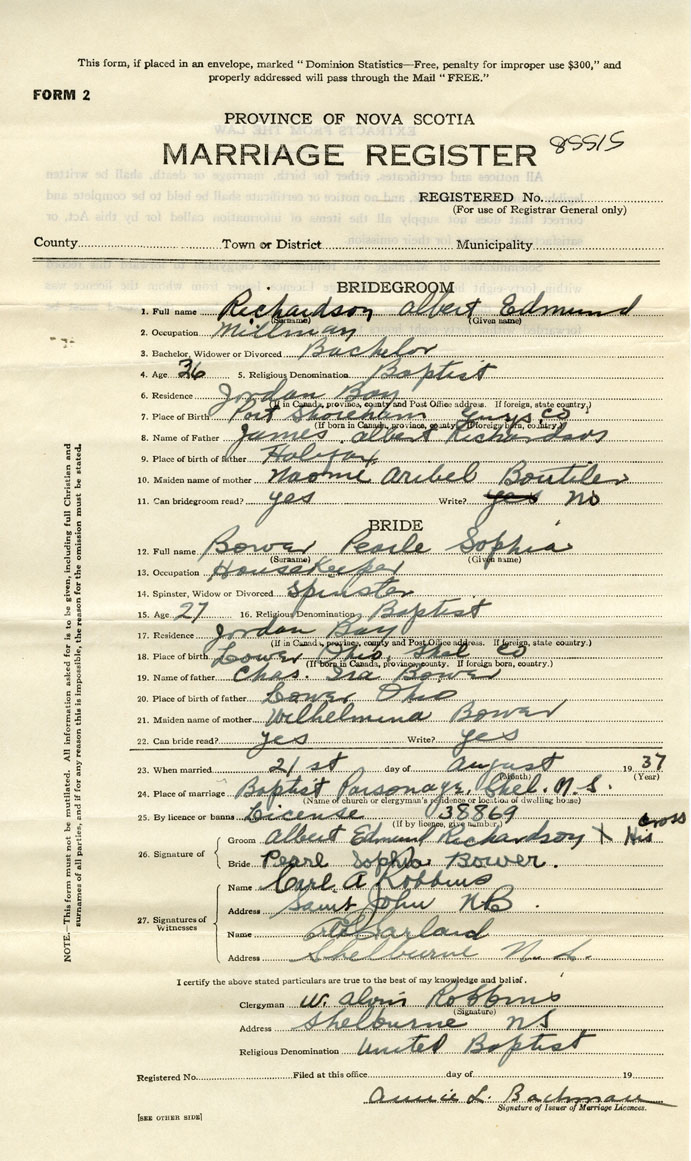 This form, if placed in an envelope, marked "Dominion Statistics—Free, penalty for improper use $300," and
properly addressed will pass through the Mail "FREE."
FORM 2
PROVINCE OF NOVA SCOTIA
MARRIAGE REGISTER 85515
REGISTERED No.
(For use of Registrar General only)
County Town or District Municipality
BRIDEGROOM
1. Full name Richardson Albert Edmund
(Surname) (Given name)
2. Occupation Millman
3. Bachelor, Widower or Divorced Bachelor
4. Age 36 5. Religious Denomination Baptist
6. Residence Jordan Bay
(If in Canada, province, county and Post Office address. If foreign, state country.)
7. Place of Birth Port Shoreham Guys. Co.
(If born in Canada, province, county. If foreign born, country.)
8. Name of Father James Albert Richardson
9. Place of birth of father Halifax
10. Maiden name of mother Naomi Aribel Boutiler
11. Can bridegroom read? yes Write? yes no
BRIDE
12. Full name Bower Pearle Sophia
(Surname) (Given name)
13. Occupation Housekeeper
14. Spinster, Widow or Divorced Spinster
15. Age 27 16. Religious Denomination Baptist
17. Residence Jordan Bay
(If in Canada, province, county and Post Office address. If foreign, state country.)
18. Place of birth Lower Ohio, Shel Co
(If born in Canada, province, county. If foreign born, country.)
19. Name of father Chas. Ira Bower
20. Place of birth of father Lower Ohio
21. Maiden name of mother Wilhelmina Bower
22. Can bride read? yes Write? yes
23. When married 21st day of August 1937
(Month) (Year)
24. Place of marriage Baptist Parsonage, Shel. N.S.
(Name of church or clergyman's residence or location of dwelling house)
25. By licence or banns License 38869
(If by licence, give number)
26. Signature of
Groom Albert Edmund Richardson X His cross
Bride Pearl Sophia Bower.
27. Signatures of Witnesses
Name Carl A Robbins
Address Saint John NB.
Name Garland
Address Shelburne N.S.
I certify the above stated particulars are true to the best of my knowledge and belief.
Clergyman W. Alvin Robbins
(Signature)
Address Shelburne NS
Religious Denomination United Baptist
Registered No. Filed at this office day of 19
Annie L. Bachman
Signature of Issuer of Marriage Licences.
[SEE OTHER SIDE]
NOTE.—This form must not be mutilated. All information asked for is to be given, including full Christian and
surnames of all parties, and if for any reason this is impossible, the reason for the omission must be stated.